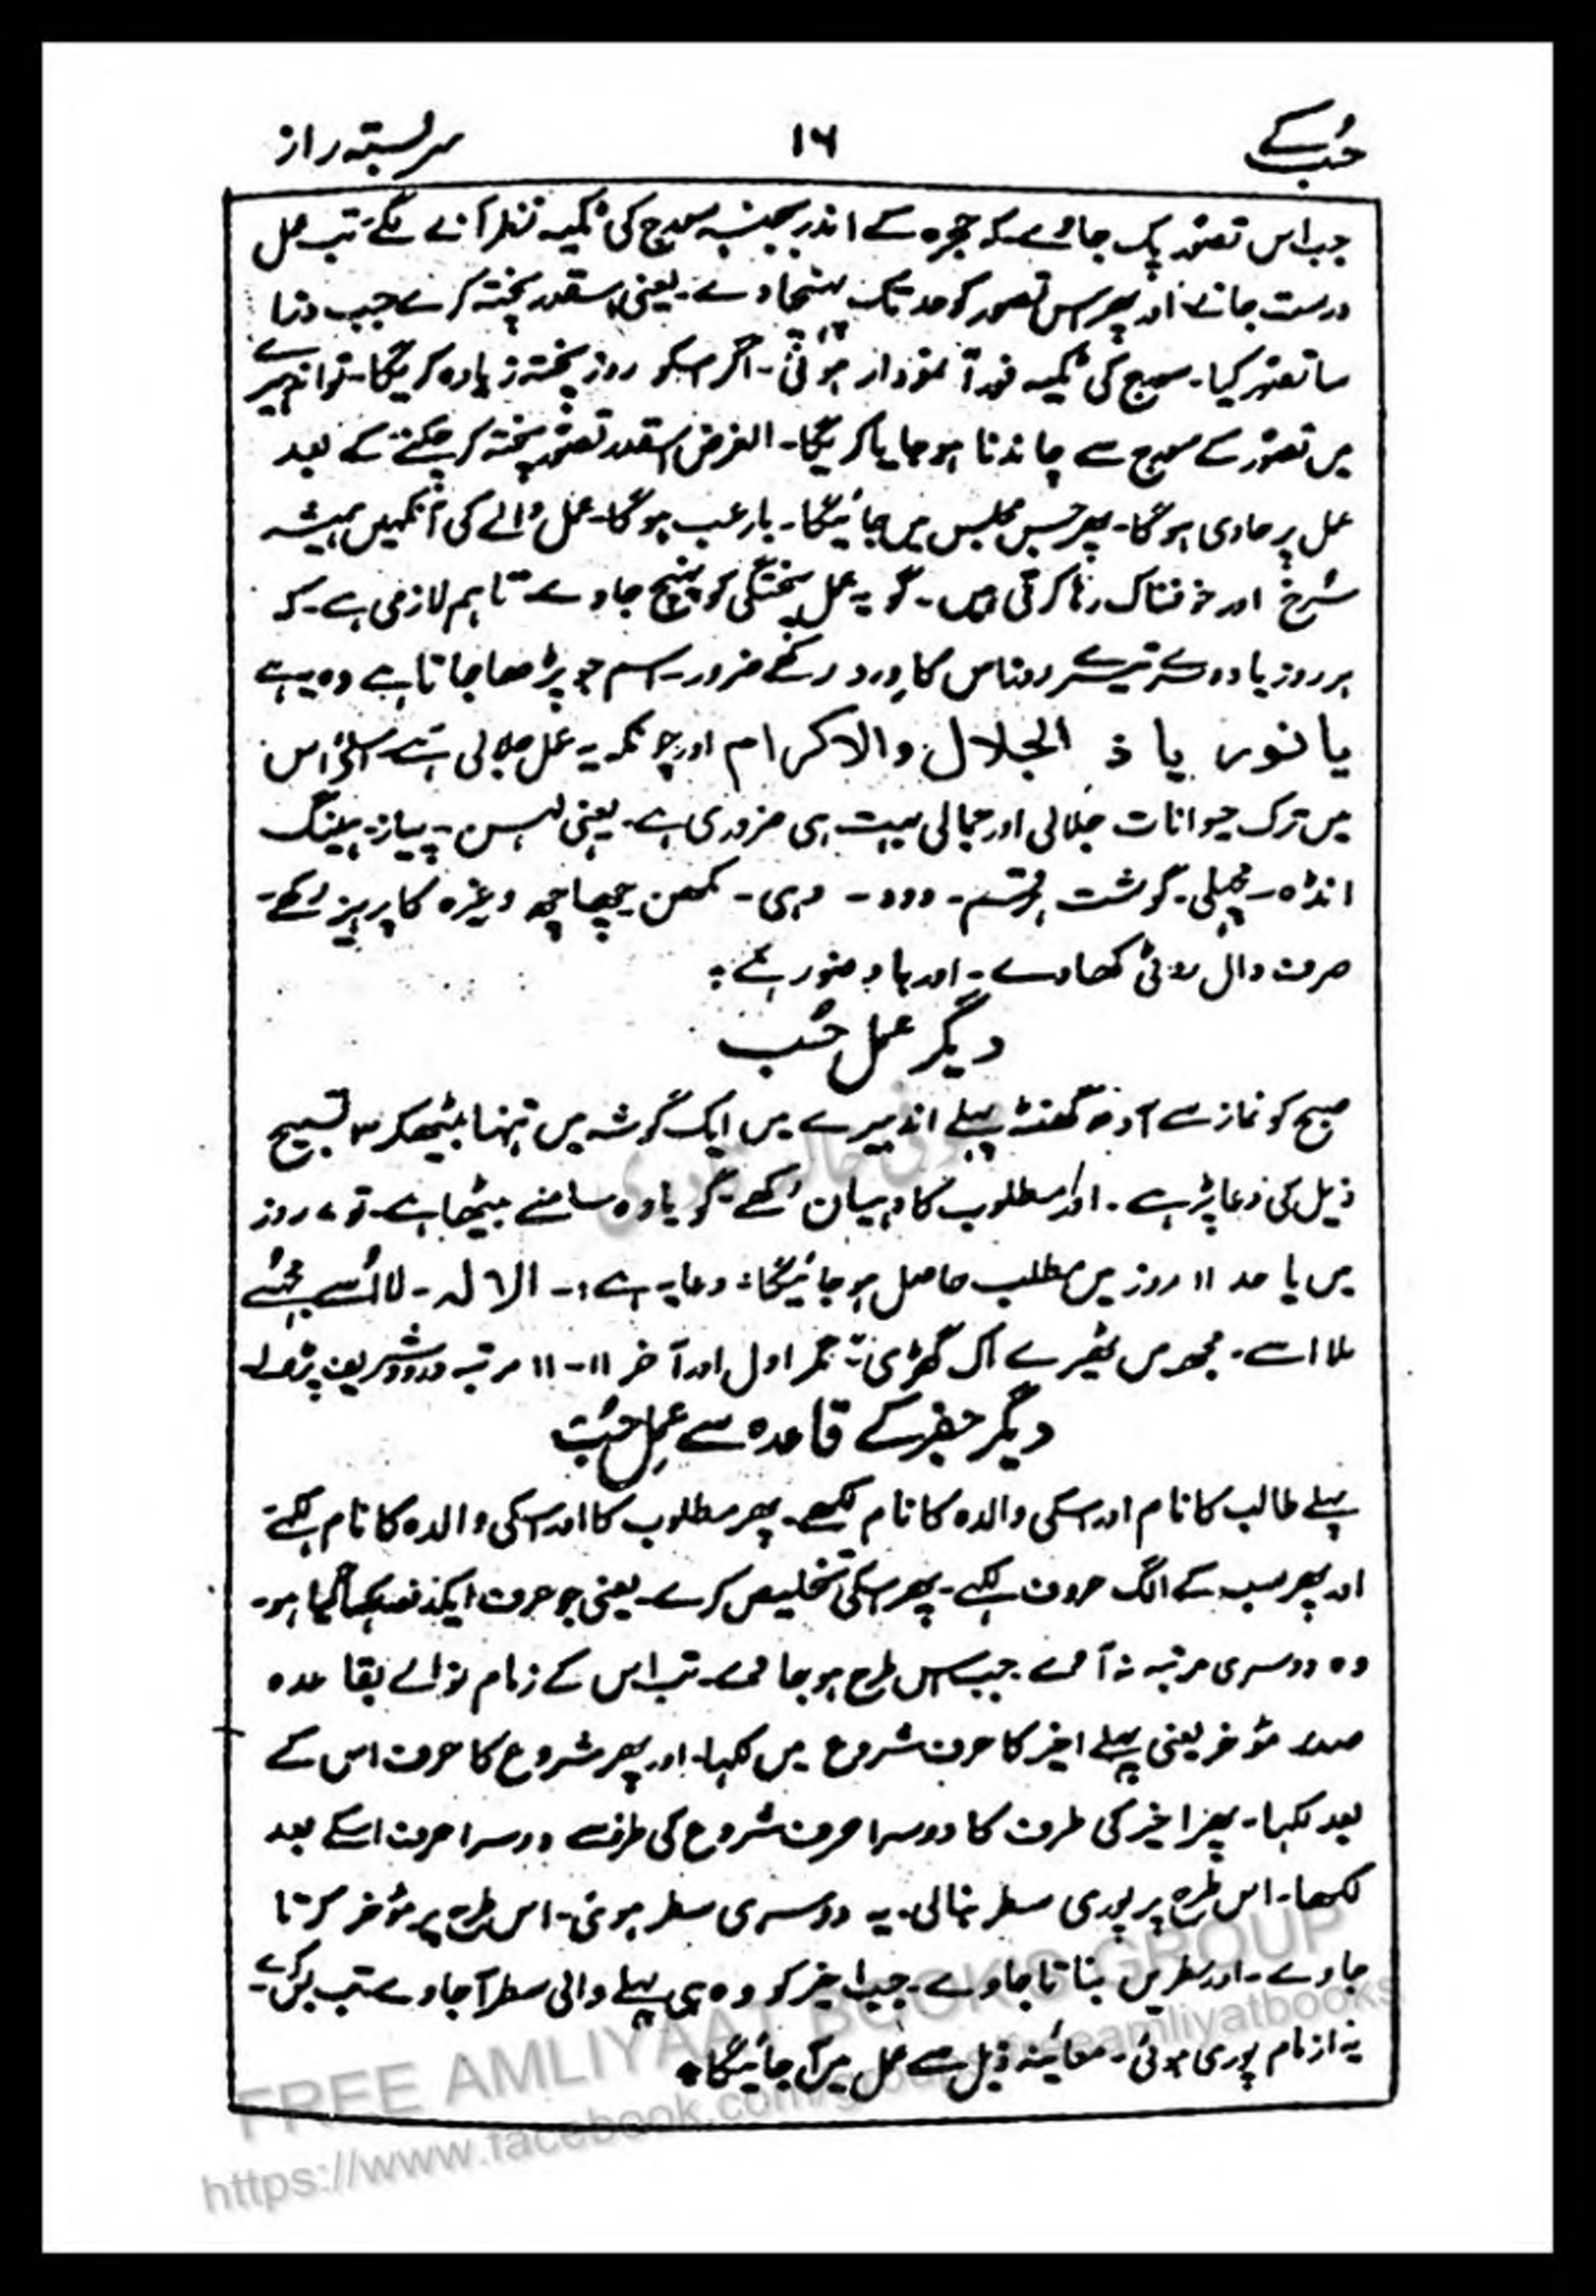 حُب کے ۱۶ سربستہ راز
جب اس تصور پک جائے کہ حجرہ کے اندر بجنسہ سورج کی ٹکیہ نظر آنے لگے تب عمل
درست جانے اور پھر اس تصور کو حد تک پہنچاوے۔ یعنی اسقدر پختہ کرے جب ذرا
سا تصور کیا۔ سورج کی ٹکیہ فوراً نمودار ہوئی۔ اگر اسکو روز پختہ زیادہ کریگا۔ تو اندھیرے
میں تصور کے سورج سے چاندنا ہو جایا کریگا۔ الغرض اسقدر تصور پختہ کر چکنے کے بعد
عمل پر حاوی ہوگا۔ پھر جس مجلس میں جائیگا۔ بارعب ہوگا۔ عمل والے کی آنکھیں ہمیشہ
سُرخ اور خوفناک رہا کرتی ہیں۔ گو یہ عمل پختگی کو پہنچ جاوے تاہم لازمی ہے۔ کہ
ہر روز یا دوسرے تیسرے روز اس کا وِرد رکھے ضرور۔ اسم جو پڑھا جاتا ہے وہ یہ ہے
یا نور یا ذ الجلال والاکرام اور چونکہ یہ عمل جلالی ہے اسلئے اس
میں ترک حیوانات جلالی اور جمالی بہت ہی ضروری ہے۔ یعنی لہسن۔ پیاز۔ ہینگ
انڈہ۔ مچھلی۔ گوشت ہر قسم۔ دود۔ دہی۔ مکھن چھاچھ وغیرہ کا پرہیز رکھے۔
صرف دال روئی کھاوے۔ اور باوضو رہے ؛
دیگر عمل حُب
صبح کو نماز سے آدھ گھنٹہ پہلے اندہیرے میں ایک گوشہ میں تنہا بیٹھکر ۳ تسبیح
ذیل کی دعا پڑہے۔ اور مطلوب کا دہیان رکھے گویا وہ سامنے بیٹھا ہے۔ تو ۷ روز
میں یا حد ۱۱ روز میں مطلب حاصل ہو جائیگا ؛ دعا یہ ہے :۔ الا لہ۔ لا اُسے
ملا اسے۔ اک گھڑی ؛ مگر اول اور آخر ۱۱-۱۱ مرتبہ درود شریف پڑھ لے
دیگر جفر کے قاعدہ سے عملِ حُب
پہلے طالب کا نام اور اسکی والدہ کا نام لکھے۔ پھر مطلوب کا اور اسکی والدہ کا نام لکہے
اور پھر سب کے الگ حروف لکہے۔ پھر اسکی تخلیص کرے۔ یعنی جو حرف ایکدفعہ لکہا گیا ہو۔
وہ دوسری مرتبہ نہ آوے۔ جب اس طرح ہو جاوے۔ تب اس کے زمام نوالے بقاعدہ
صدر مؤخر یعنی پہلے اخیر کا حرف شروع میں لکہا۔ اور پھر شروع کا حرف اس کے
بعد لکہا۔ پھر اخیر کی طرف کا دوسرا حرف شروع کی طرف سے دوسرا حرف اسکے بعد
لکھا۔ اس طرح پر پوری سطر بنالی۔ یہ دوسری سطر ہوئی۔ اس طرح پر مؤخر کرتا
جاوے۔ اور سطریں بناتا جاوے۔ جب اخیر کو وہ ہی پہلے والی سطر آجاوے تب بس کرے۔
یہ از نام پوری ہوئی۔ معائینہ ذیل سے عمل میں آ جائیگا ؛
FREE AMLIYAAT BOOKS GROUP
https://www.facebook.com/groups/freeamliyatbooks